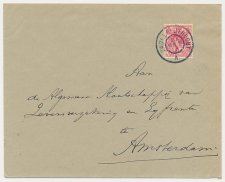 Aan
de Algemeene Maatschappij van
Levensverzekering en Lijfrente
te
Amsterdam